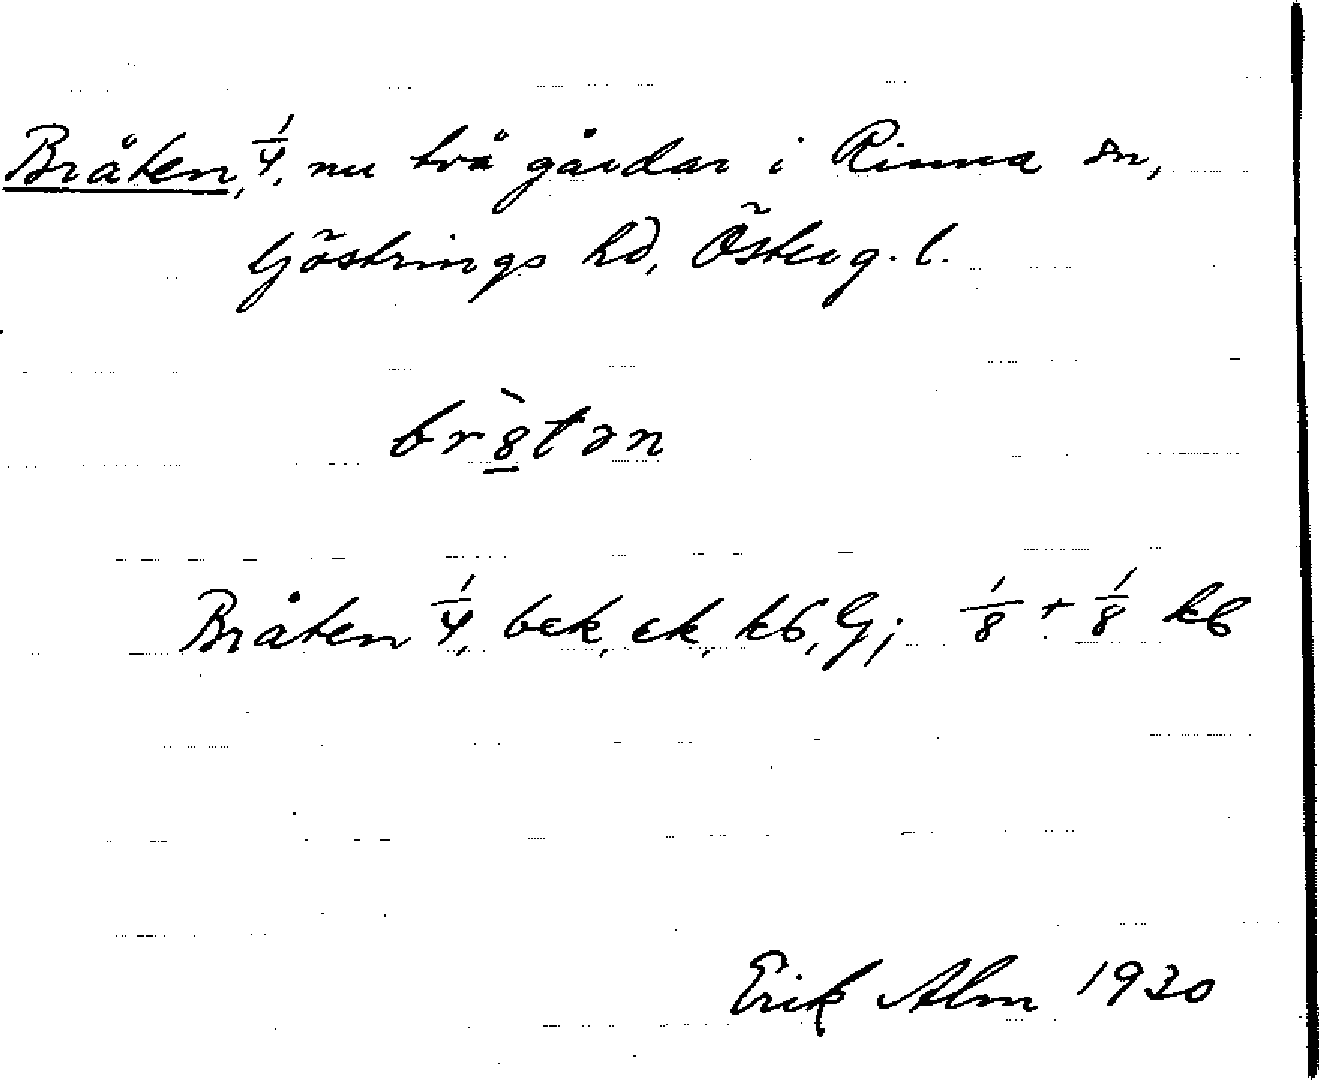 Bråten, 1/4, nu två gårdar i Rinna sn,
Göstrings hd, Österg. l.
br8̲̀tən
Bråten 1/4, bek, ek, kb, G; 1/8 + 1/8 kb
Erik Alm 1930